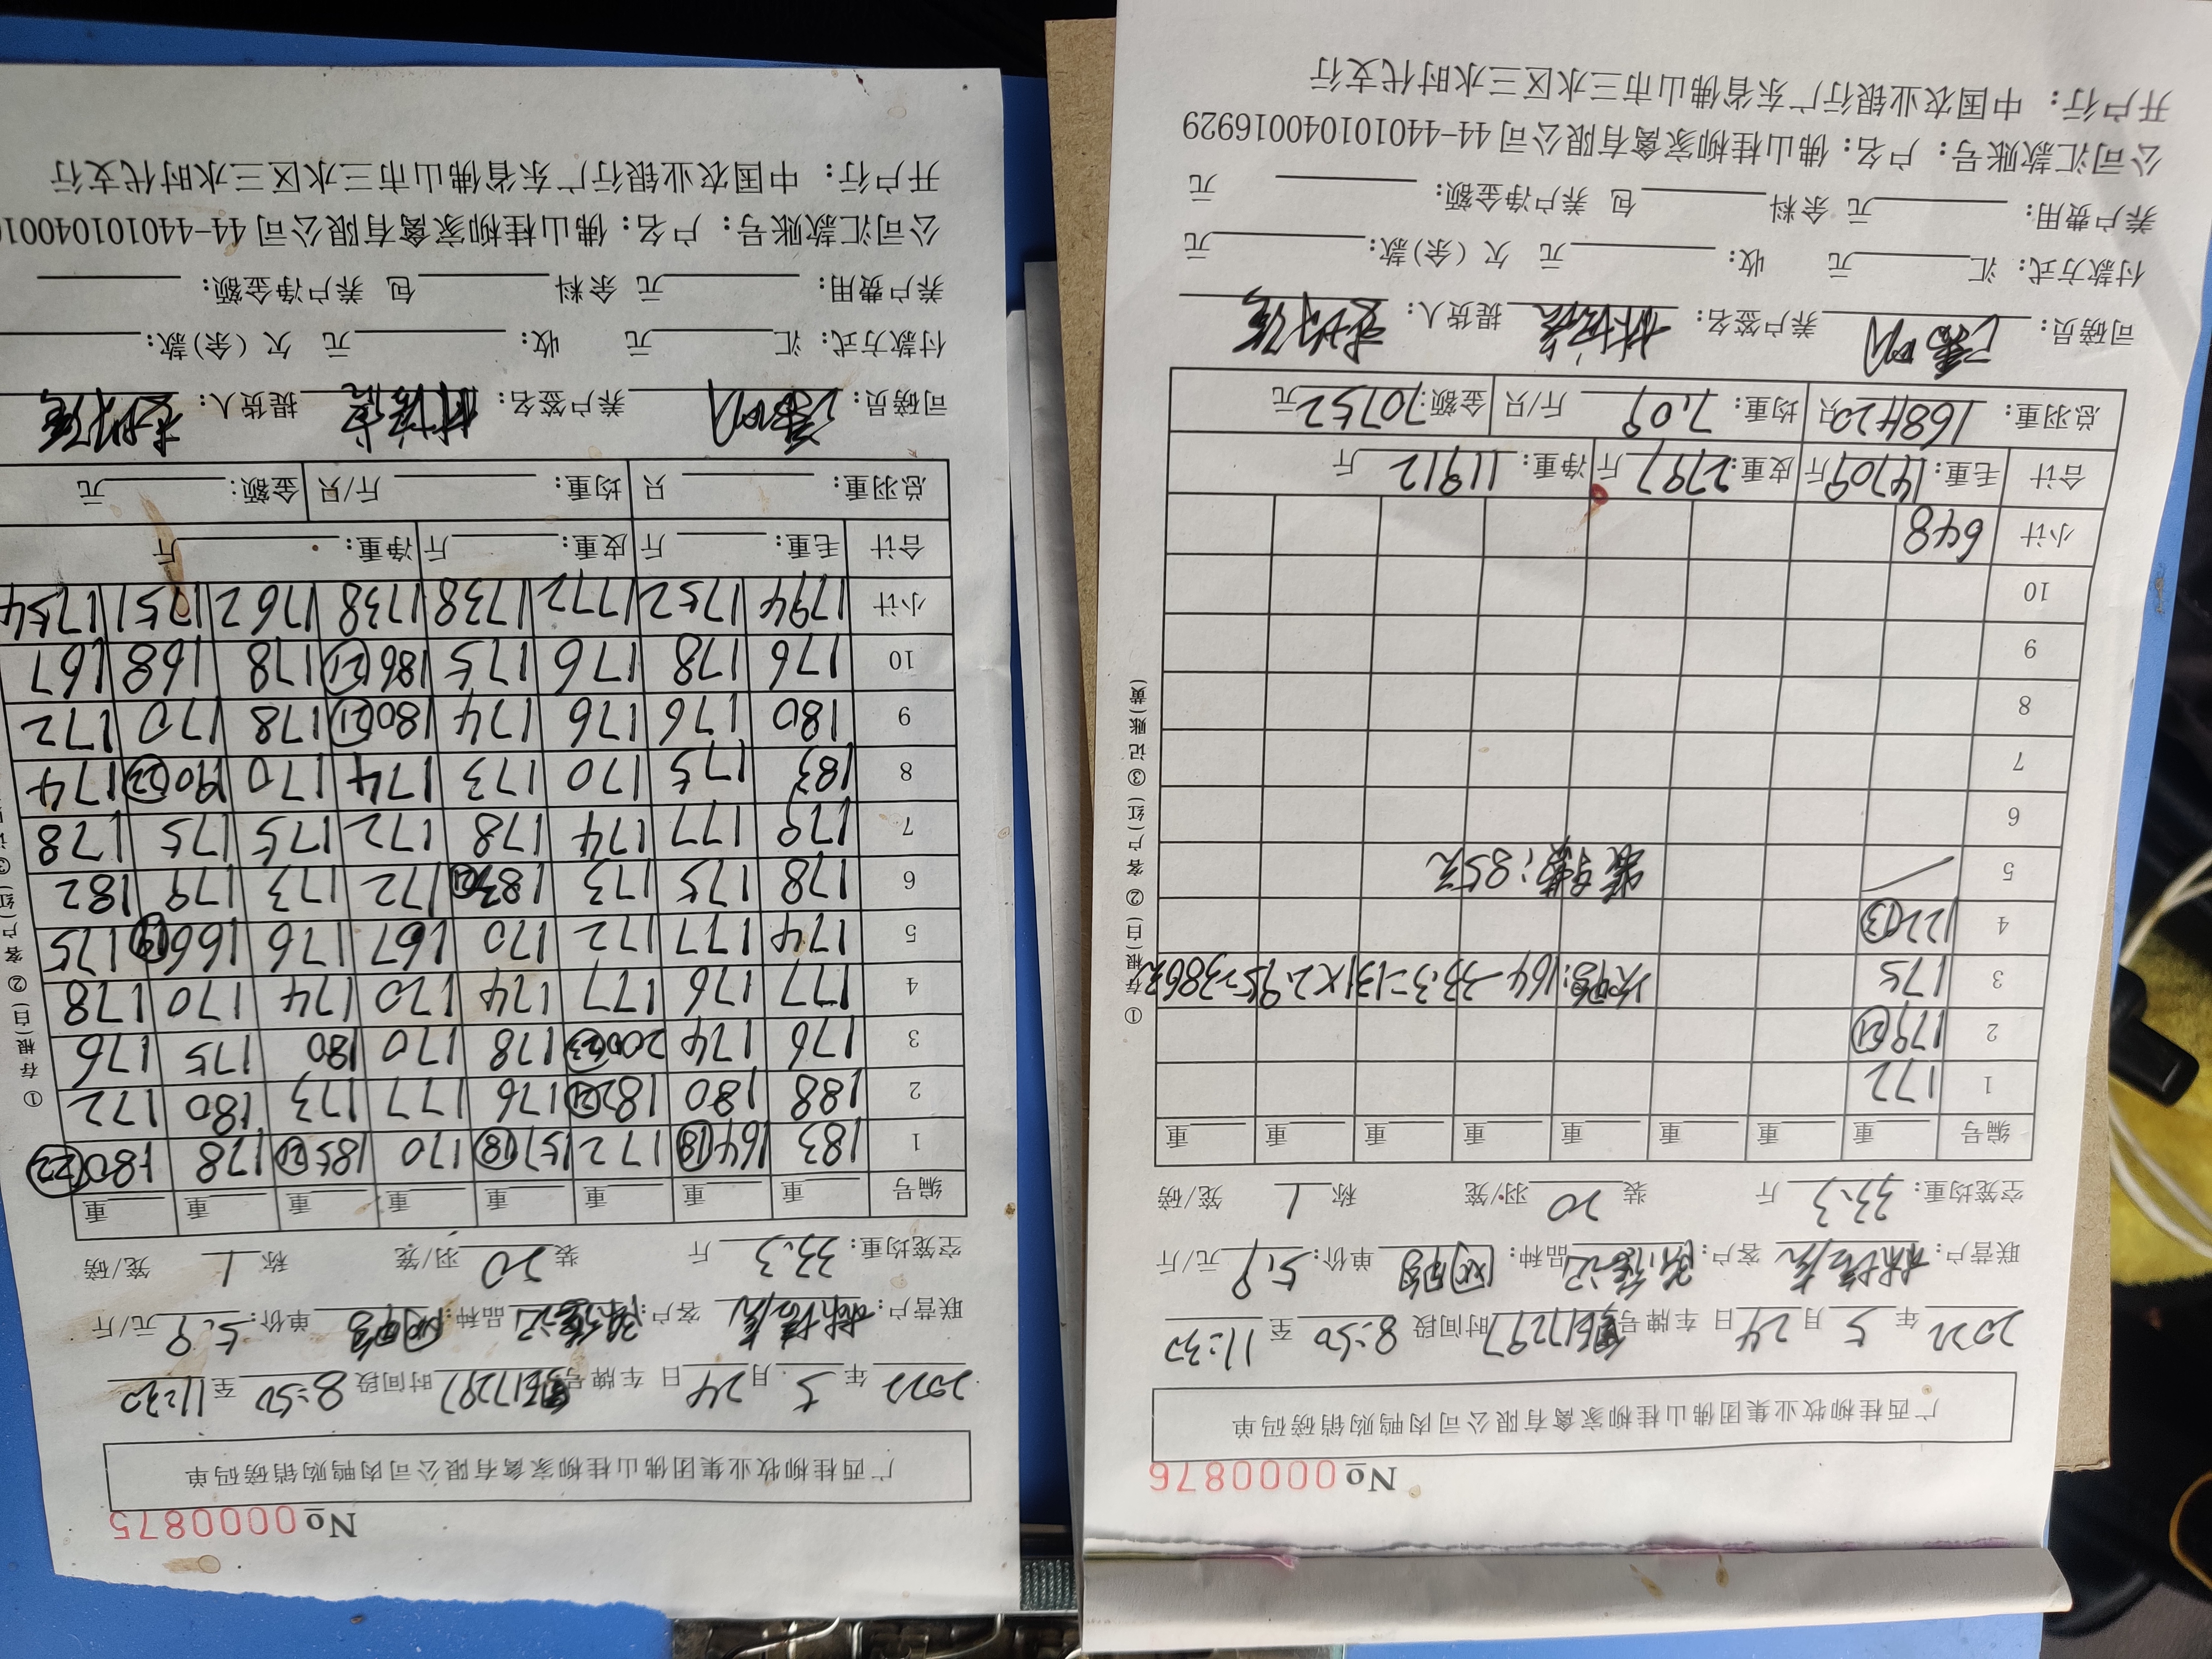 No 0000876
广西桂柳牧业集团佛山桂柳家禽有限公司肉鸭购销磅码单
2022年 5月 24日 车牌号 17297 时间段 8:50 至 11:30
联营户: 客户: 品种: 单价: 5.9 元/斤
空笼均重: 33.3 斤 装 20 羽/笼 称 1 笼/磅
编号 重 重 重 重 重 重 重 重
1 172
2 179 (21)
3 175 次鸭:164-33.3=131×2.95=386元
4 122 (13)
5 85元
6
7
8
9
10
小计 648
合计 毛重: 14709 斤 皮重: 2797 斤 净重: 11912 斤
总羽重: 只 均重: 7.09 斤/只 金额: 70752 元
司磅员: 养户签名: 提货人:
付款方式: 汇 元 收: 元 欠(余)款: 元
养户费用: 元 余料 包 养户净金额: 元
公司汇款账号: 户名: 佛山桂柳家禽有限公司 44-440101040016929
开户行: 中国农业银行广东省佛山市三水区三水时代支行
①存根(白) ②客户(红) ③记账(黄)
No 0000875
广西桂柳牧业集团佛山桂柳家禽有限公司肉鸭购销磅码单
2022年 5月 24日 车牌号 17297 时间段 8:50 至 11:30
联营户: 客户: 品种: 单价: 5.9 元/斤
空笼均重: 33.3 斤 装 20 羽/笼 称 1 笼/磅
编号 重 重 重 重 重 重 重 重
1 183 164 (18) 172 157 (18) 170 185 (21) 178 180 (22)
2 188 180 182 (21) 176 177 173 180 172
3 176 174 200 (23) 178 170 180 175 176
4 177 176 177 174 170 174 170 178
5 174 177 172 170 167 176 166 (19) 175
6 178 175 173 183 (21) 172 173 179 182
7 179 177 174 178 172 175 175 178
8 183 175 170 173 174 170 190 (22) 174
9 180 176 176 174 180 (21) 178 170 172
10 176 178 176 175 186 (21) 178 168 167
小计 1794 1752 1772 1738 1738 1762 1751 1754
合计 毛重: 斤 皮重: 斤 净重: 斤
总羽重: 只 均重: 斤/只 金额: 元
司磅员: 养户签名: 提货人:
付款方式: 汇 元 收: 元 欠(余)款:
养户费用: 元 余料 包 养户净金额:
公司汇款账号: 户名: 佛山桂柳家禽有限公司 44-4401010400
开户行: 中国农业银行广东省佛山市三水区三水时代支行
①存根(白) ②客户(红) ③